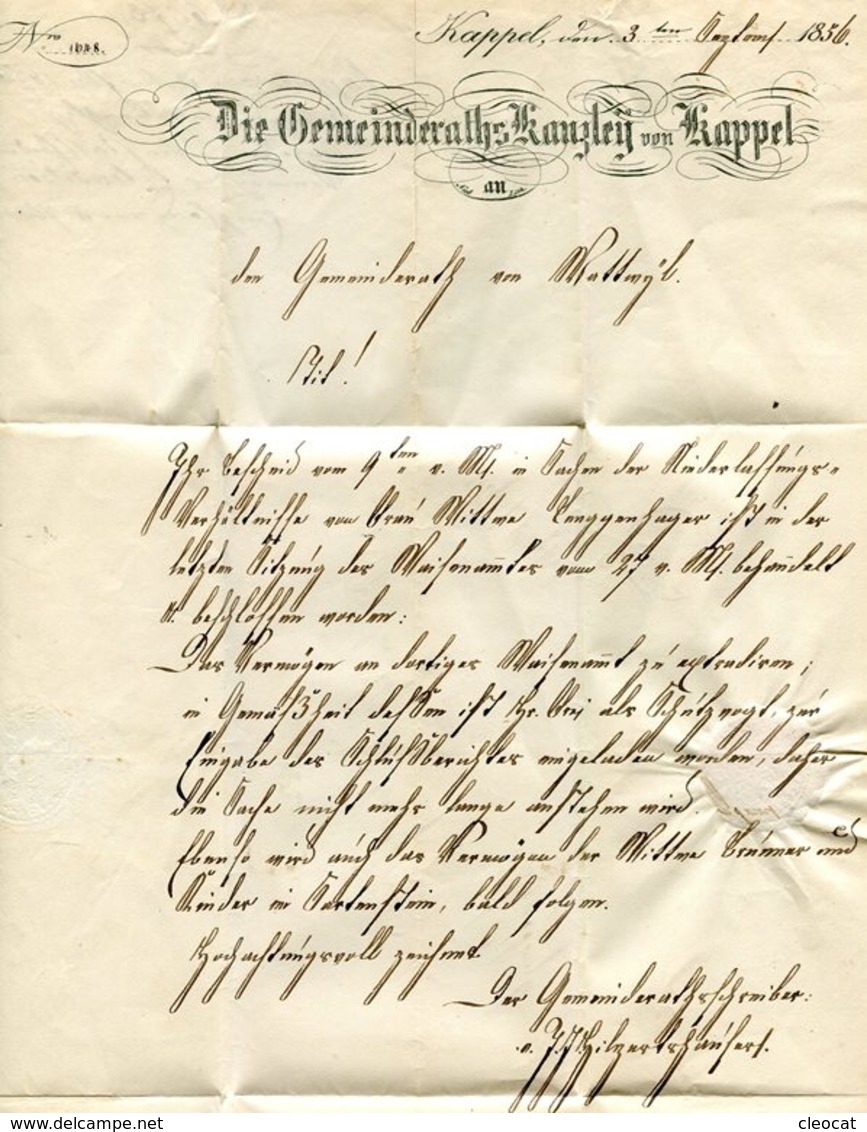 Nro 1048. Kappel, den 3ten Septemb 1856.
Die Gemeinderaths Kanzley von Kappel
an
den Gemeinderath von Wattwyl.
Tit!
Ihr Bescheid vom 9ten v. Mt. in Sachen der Niederlassungs-
Verhältnisse von Frau Wittwe Brunggenhager ist in der
letzten Sitzung des Waisenamtes vom 27 v. Mt. behandelt
u. beschlossen worden:
Das Vermögen an dortiges Waisenamt zu extradiren;
in Gemäßheit dessen ist Hr. Frei als Schutzvogt, zur
Eingabe des Schlußberichtes eingeladen worden, daher
die Sache nicht mehr lange anstehen wird.
Ebenso wird auch das Vermögen der Wittwe Brunner und
Kinder in Furtenstein, bald folgen.
Hochachtungsvoll zeichnet
Der Gemeinderathsschreiber:
J. J. Hilpertshauser.
www.delcampe.net
cleocat